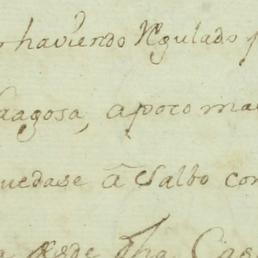 haviendo Regulado
ragosa, a poco ma
uedase â salbo con
a desde dha Cas